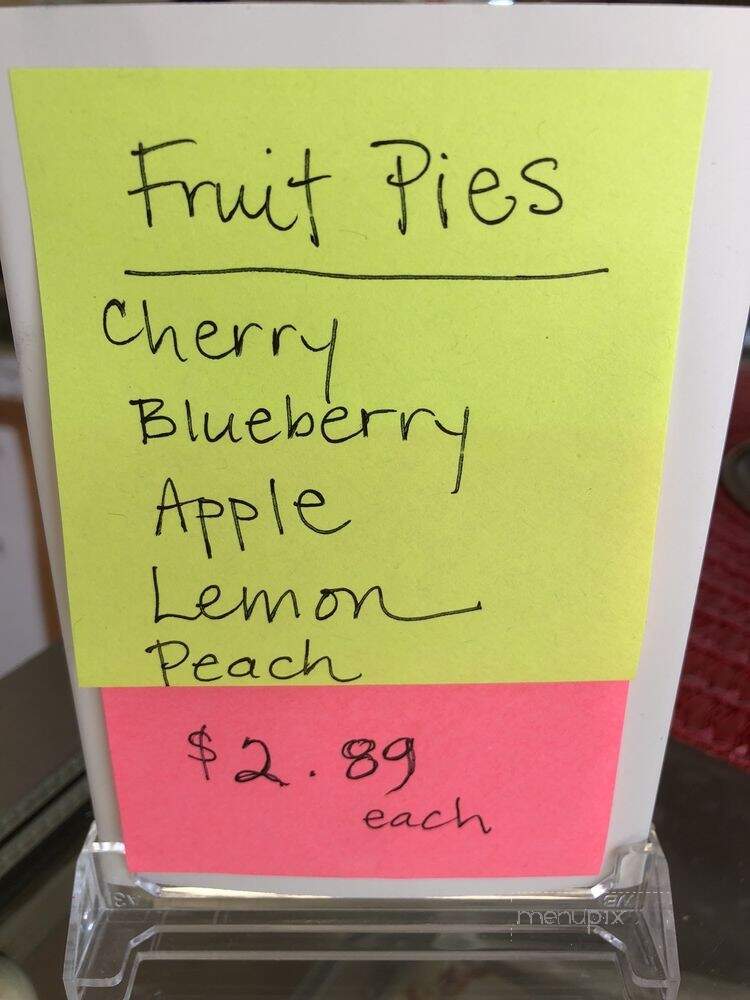 Fruit Pies
Cherry
Blueberry
Apple
Lemon
Peach
$2.89
each
menupix